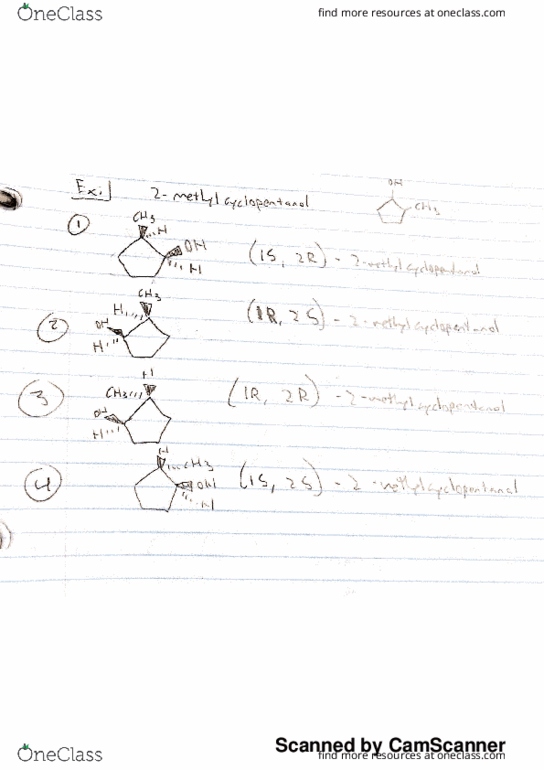 OneClass
find more resources at oneclass.com
Ex:]
2-methylcyclopentanol
OH
CH3
①
CH3
H
OH
H
(1S, 2R) - 2-methylcyclopentanol
②
CH3
H
OH
H
(1R, 2S) - 2-methylcyclopentanol
③
H
CH3
OH
H
(1R, 2R) - 2-methylcyclopentanol
④
H
CH3
OH
H
(1S, 2S) - 2-methylcyclopentanol
Scanned by CamScanner
OneClass
find more resources at oneclass.com